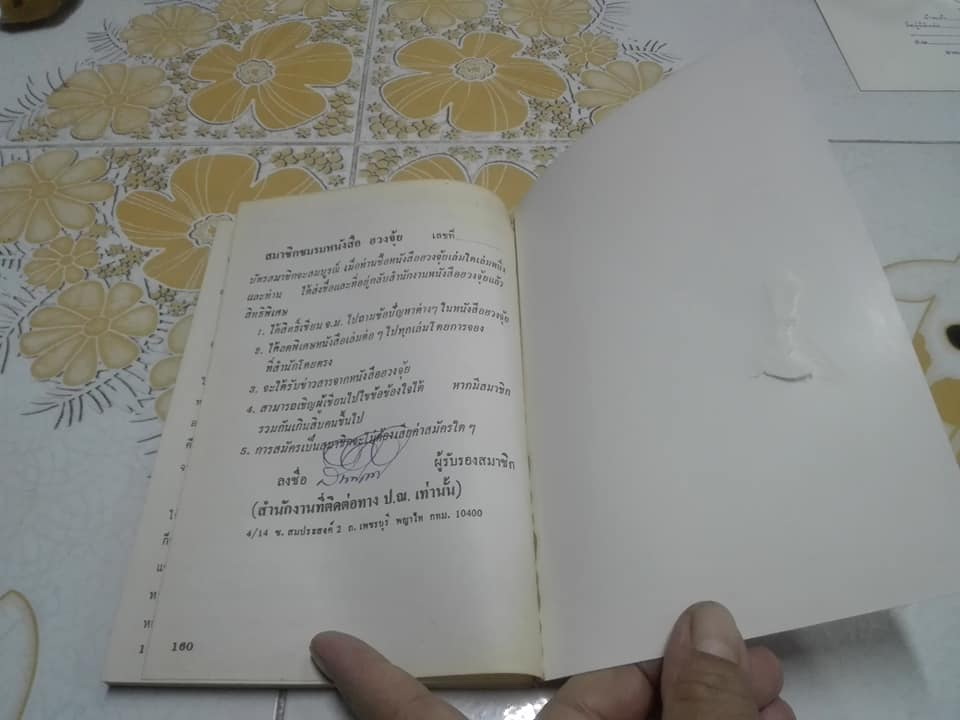 สมาชิกชมรมหนังสือ ฮวงจุ้ย เลขที่
บัตรสมาชิกจะสมบูรณ์ เมื่อท่านซื้อหนังสือฮวงจุ้ยเล่มใดเล่มหนึ่ง
และท่าน ได้ส่งชื่อและที่อยู่กลับสำนักงานหนังสือฮวงจุ้ยแล้ว
สิทธิพิเศษ
1. ได้สิทธิ์เขียน จ.ม. ไปถามข้อปัญหาต่างๆ ในหนังสือฮวงจุ้ย
2. ได้ลดพิเศษหนังสือเล่มต่อ ๆ ไปทุกเล่มโดยการจอง
ที่สำนักโดยตรง
3. จะได้รับข่าวสารจากหนังสือฮวงจุ้ย
4. สามารถเชิญผู้เขียนไปไขข้อข้องใจได้ หากมีสมาชิก
รวมกันเกินสิบคนขึ้นไป
5. การสมัครเป็นสมาชิกจะไม่ต้องเสียค่าสมัครใด ๆ
ลงชื่อ ผู้รับรองสมาชิก
(สำนักงานที่ติดต่อทาง ป.ณ. เท่านั้น)
4/14 ซ. สมประสงค์ 2 ถ. เพชรบุรี พญาไท กทม. 10400
160